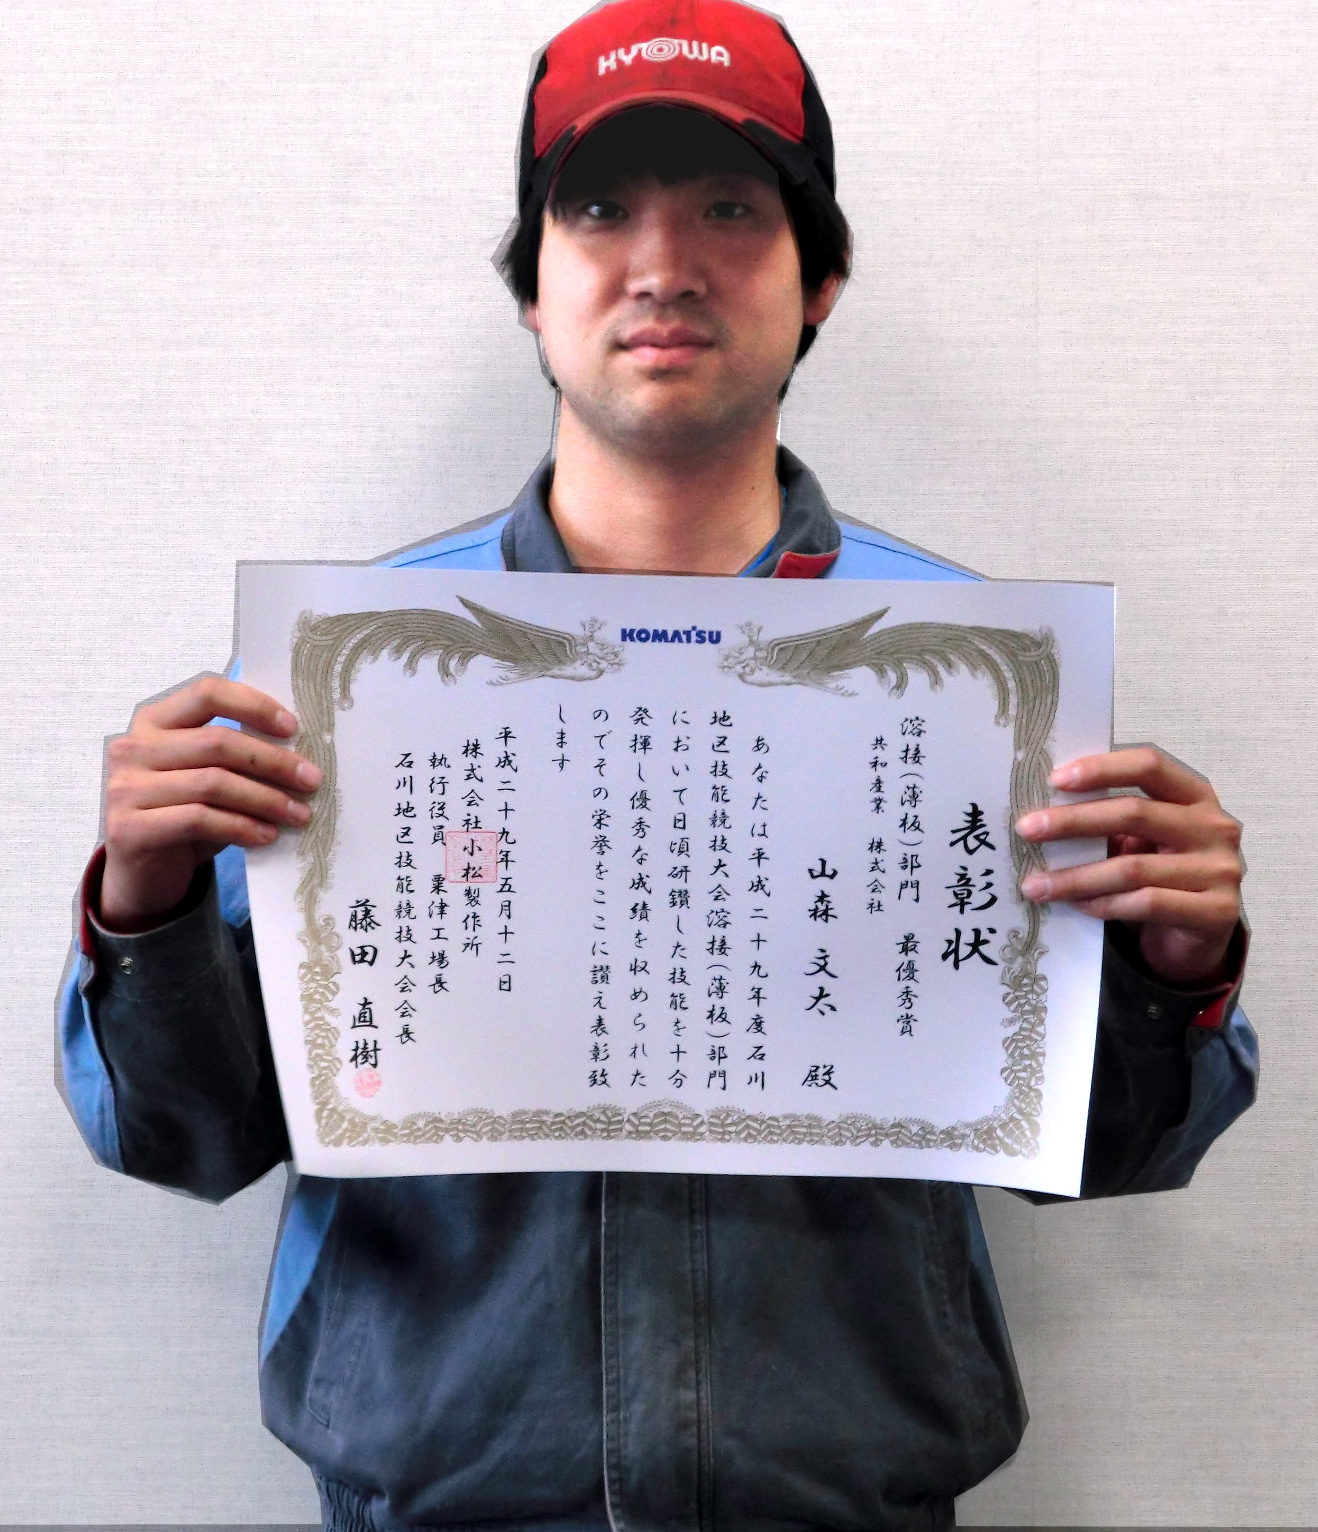 KYOWA
KOMATSU
表彰状
溶接(薄板)部門 最優秀賞
共和産業 株式会社
山森 文太 殿
あなたは平成二十九年度石川
地区技能競技大会溶接(薄板)部門
において日頃研鑽した技能を十分
発揮し優秀な成績を収められた
のでその栄誉をここに讃え表彰致
します
平成二十九年五月十二日
株式会社小松製作所
執行役員 粟津工場長
石川地区技能競技大会会長
藤田 直樹